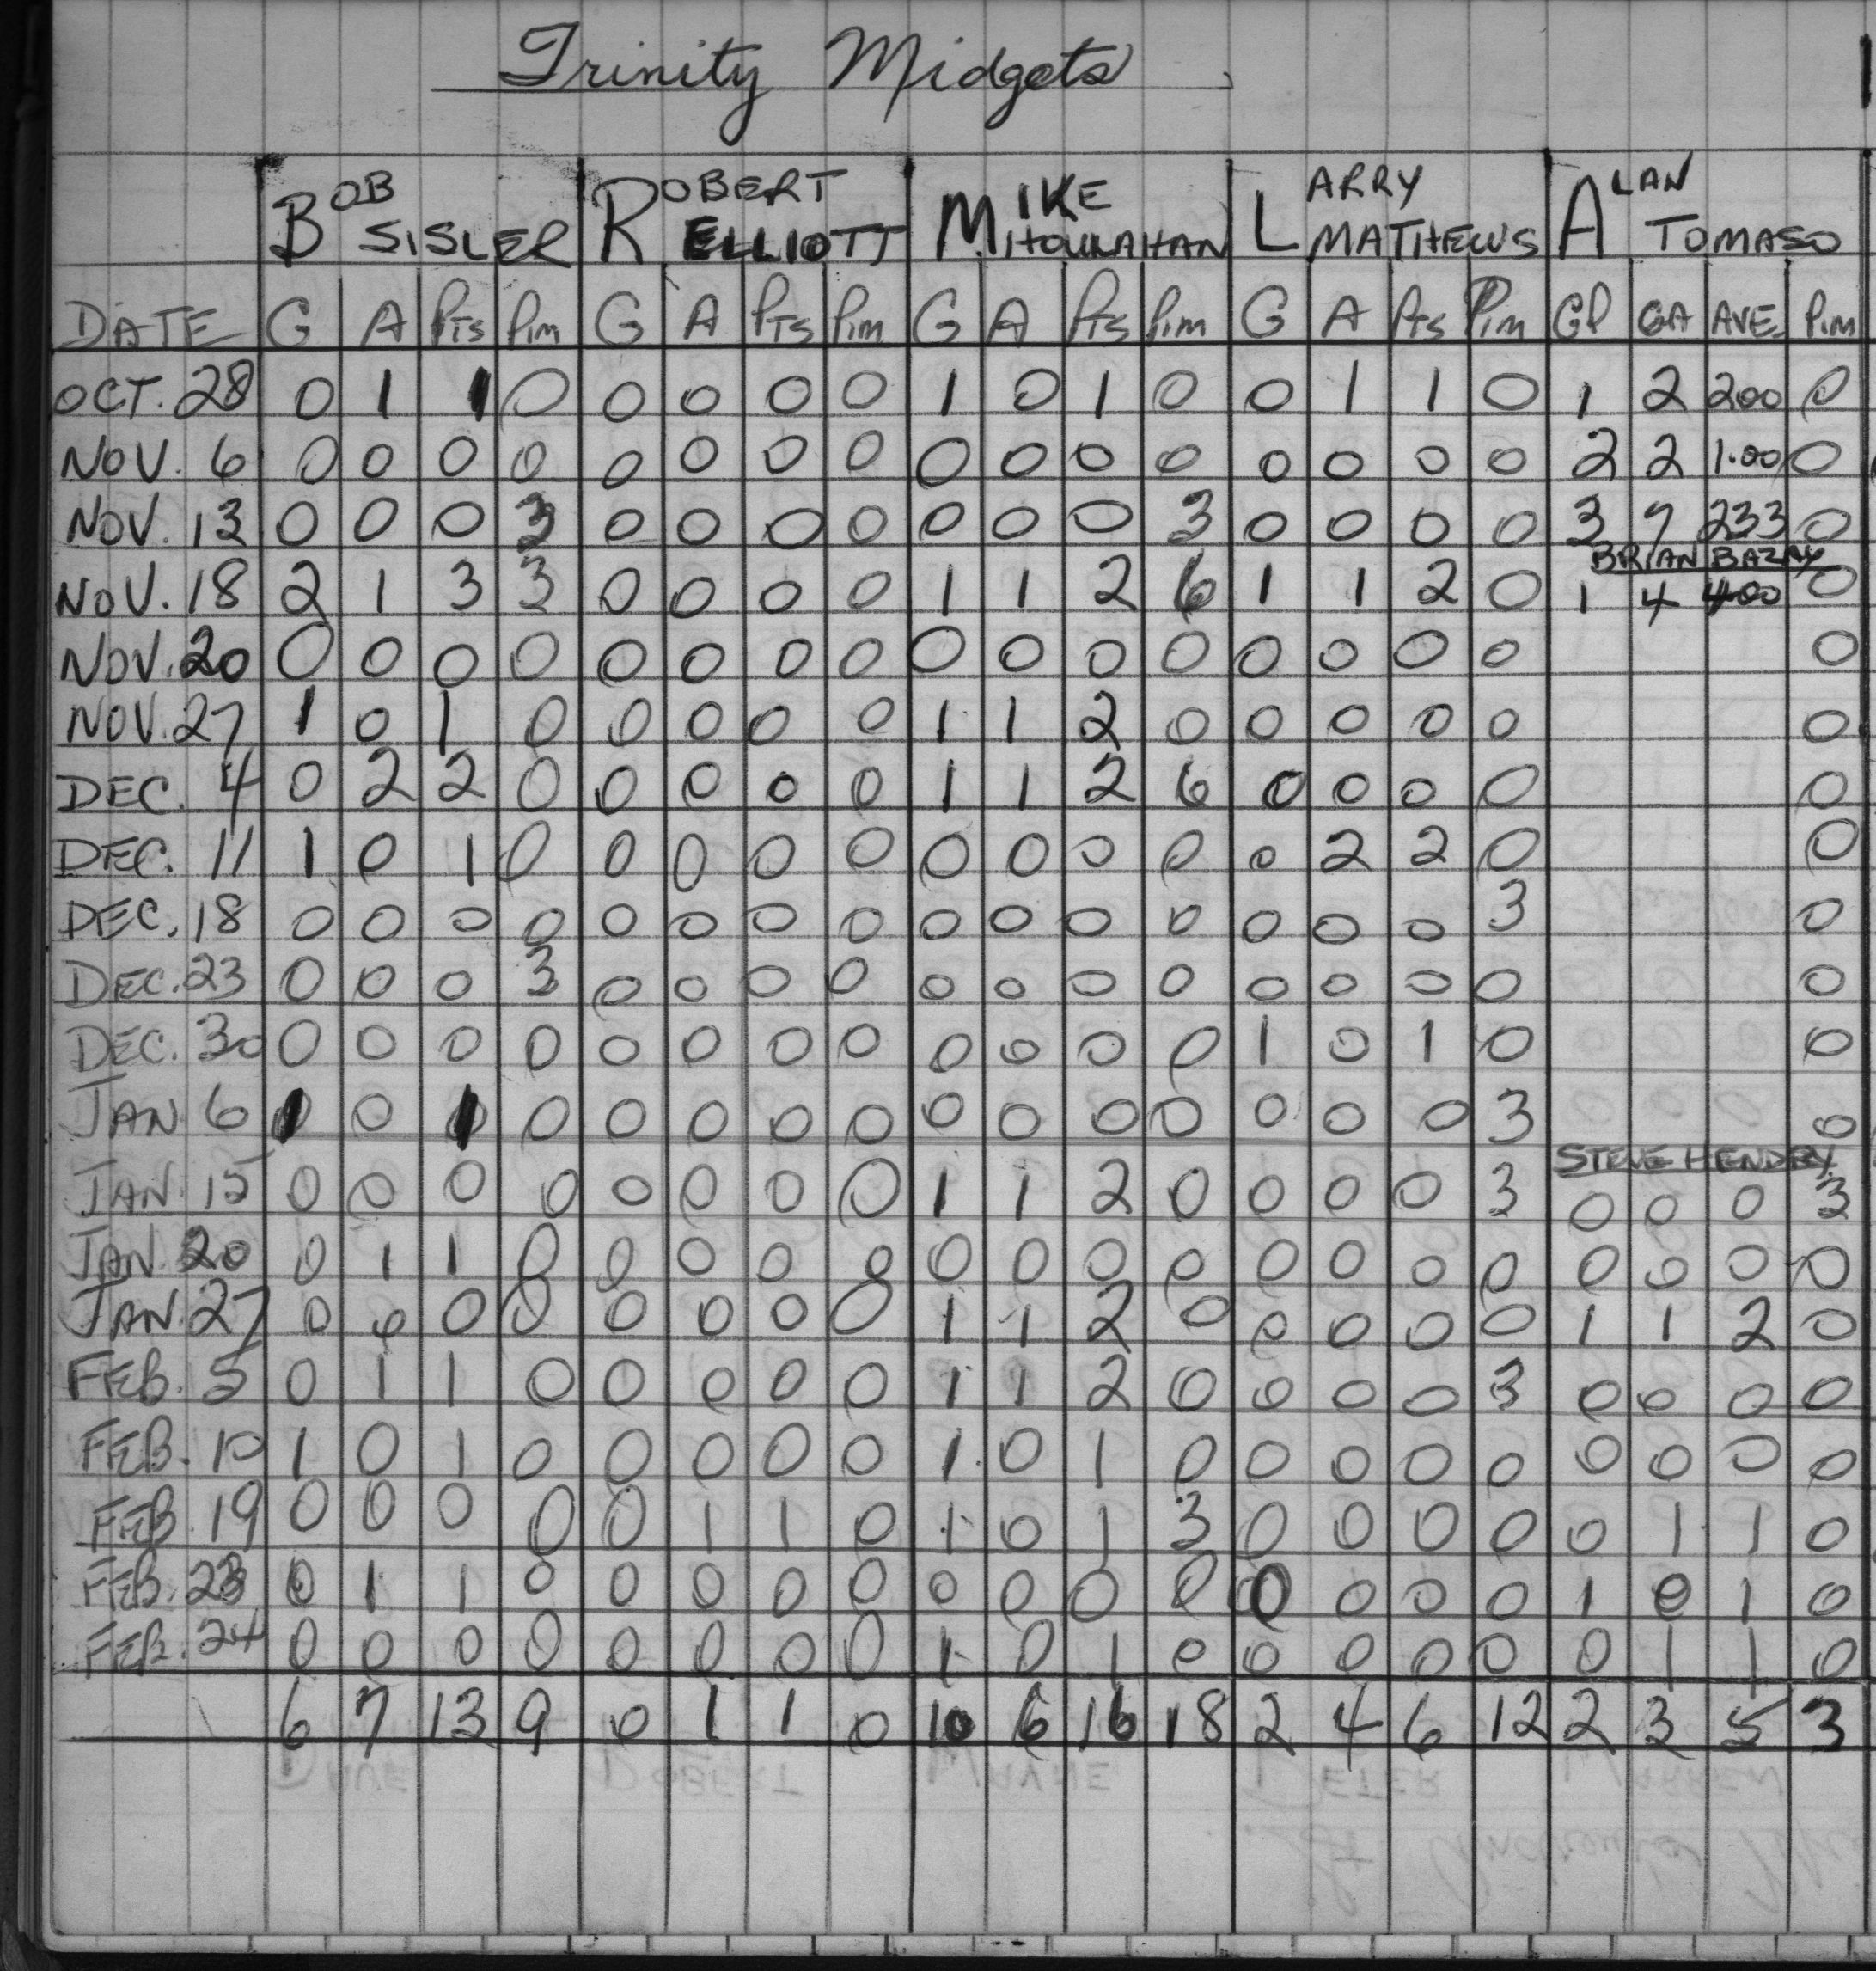 Trinity Midgets
BOB SISLER ROBERT ELLIOTT MIKE LARRY MATHEWS ALAN TOMASO
DATE G A Pts Pim G A Pts Pim G A Pts Pim G A Pts Pim GP GA AVE. Pim
OCT. 28 0 1 1 0 0 0 0 0 1 0 1 0 0 1 1 0 1 2 200 0
NOV. 6 0 0 0 0 0 0 0 0 0 0 0 0 0 0 0 0 2 2 1.00 0
NOV. 13 0 0 0 3 0 0 0 0 0 0 0 3 0 0 0 0 3 7 233 0
BRIAN
NOV. 18 2 1 3 3 0 0 0 0 1 1 2 6 1 1 2 0 1 4 400 0
NOV. 20 0 0 0 0 0 0 0 0 0 0 0 0 0 0 0 0 0
NOV. 27 1 0 1 0 0 0 0 0 1 1 2 0 0 0 0 0 0
DEC. 4 0 2 2 0 0 0 0 0 1 1 2 6 0 0 0 0 0
DEC. 11 1 0 1 0 0 0 0 0 0 0 0 0 0 2 2 0 0
DEC. 18 0 0 0 0 0 0 0 0 0 0 0 0 0 0 0 3 0
DEC. 23 0 0 0 3 0 0 0 0 0 0 0 0 0 0 0 0 0
DEC. 30 0 0 0 0 0 0 0 0 0 0 0 0 1 0 1 0 0
JAN 6 1 0 1 0 0 0 0 0 0 0 0 0 0 0 0 3 0
STEVE HENDRY
JAN. 15 0 0 0 0 0 0 0 0 1 1 2 0 0 0 0 3 0 0 0 3
JAN. 20 0 1 1 0 0 0 0 0 0 0 0 0 0 0 0 0 0 0 0 0
JAN. 27 0 0 0 0 0 0 0 0 1 1 2 0 0 0 0 0 1 1 2 0
FEB. 5 0 1 1 0 0 0 0 0 1 1 2 0 0 0 0 3 0 0 0 0
FEB. 10 1 0 1 0 0 0 0 0 1 0 1 0 0 0 0 0 0 0 0 0
FEB. 19 0 0 0 0 0 1 1 0 1 0 1 3 0 0 0 0 0 1 1 0
FEB. 23 0 1 1 0 0 0 0 0 0 0 0 0 0 0 0 0 1 0 1 0
FEB. 24 0 0 0 0 0 0 0 0 1 0 1 0 0 0 0 0 0 1 1 0
6 7 13 9 0 1 1 0 10 6 16 18 2 4 6 12 2 3 5 3